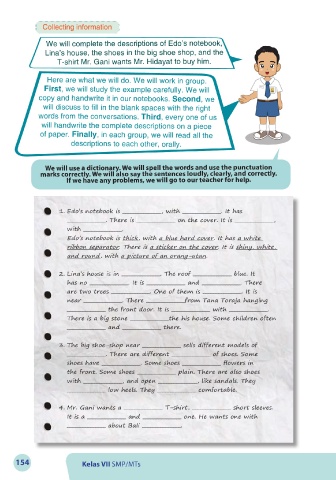 Collecting information
We will complete the descriptions of Edo's notebook,
Lina's house, the shoes in the big shoe shop, and the
T-shirt Mr. Gani wants Mr. Hidayat to buy him.
Here are what we will do. We will work in group.
First, we will study the example carefully. We will
copy and handwrite it in our notebooks. Second, we
will discuss to fill in the blank spaces with the right
words from the conversations. Third, every one of us
will handwrite the complete descriptions on a piece
of paper. Finally, in each group, we will read all the
descriptions to each other, orally.
We will use a dictionary. We will spell the words and use the punctuation
marks correctly. We will also say the sentences loudly, clearly, and correctly.
If we have any problems, we will go to our teacher for help.
1. Edo's notebook is ________, with ________. It has
________. There is ________ on the cover. It is ________,
with ________.
Edo's notebook is thick, with a blue hard cover. It has a white
ribbon separator. There is a sticker on the cover. It is shiny, white
and round, with a picture of an orang-utan.
2. Lina's house is in ________. The roof ________ blue. It
has no ________. It is ________ and ________. There
are two trees ________. One of them is ________. It is
near ________. There ________ from Tana Toraja hanging
________ the front door. It is ________ with ________.
There is a big stone ________ the his house. Some children often
________ and ________ there.
3. The big shoe-shop near ________ sells different models of
________. There are different ________ of shoes. Some
shoes have ________. Some shoes ________ flowers in
the front. Some shoes ________ plain. There are also shoes
with ________ and open ________, like sandals. They
________ low heels. They ________ comfortable.
4. Mr. Gani wants a ________ T-shirt, ________ short sleeves.
It is a ________ and ________ one. He wants one with
________ about Bali ________
154 Kelas VII SMP/MTs